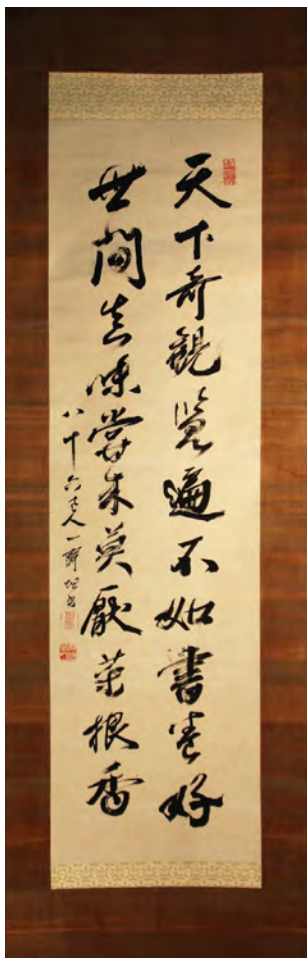 天下奇觀覽遍不如書卷好
世間真味嘗来莫厭菜根香
八十六老人一齋坦書